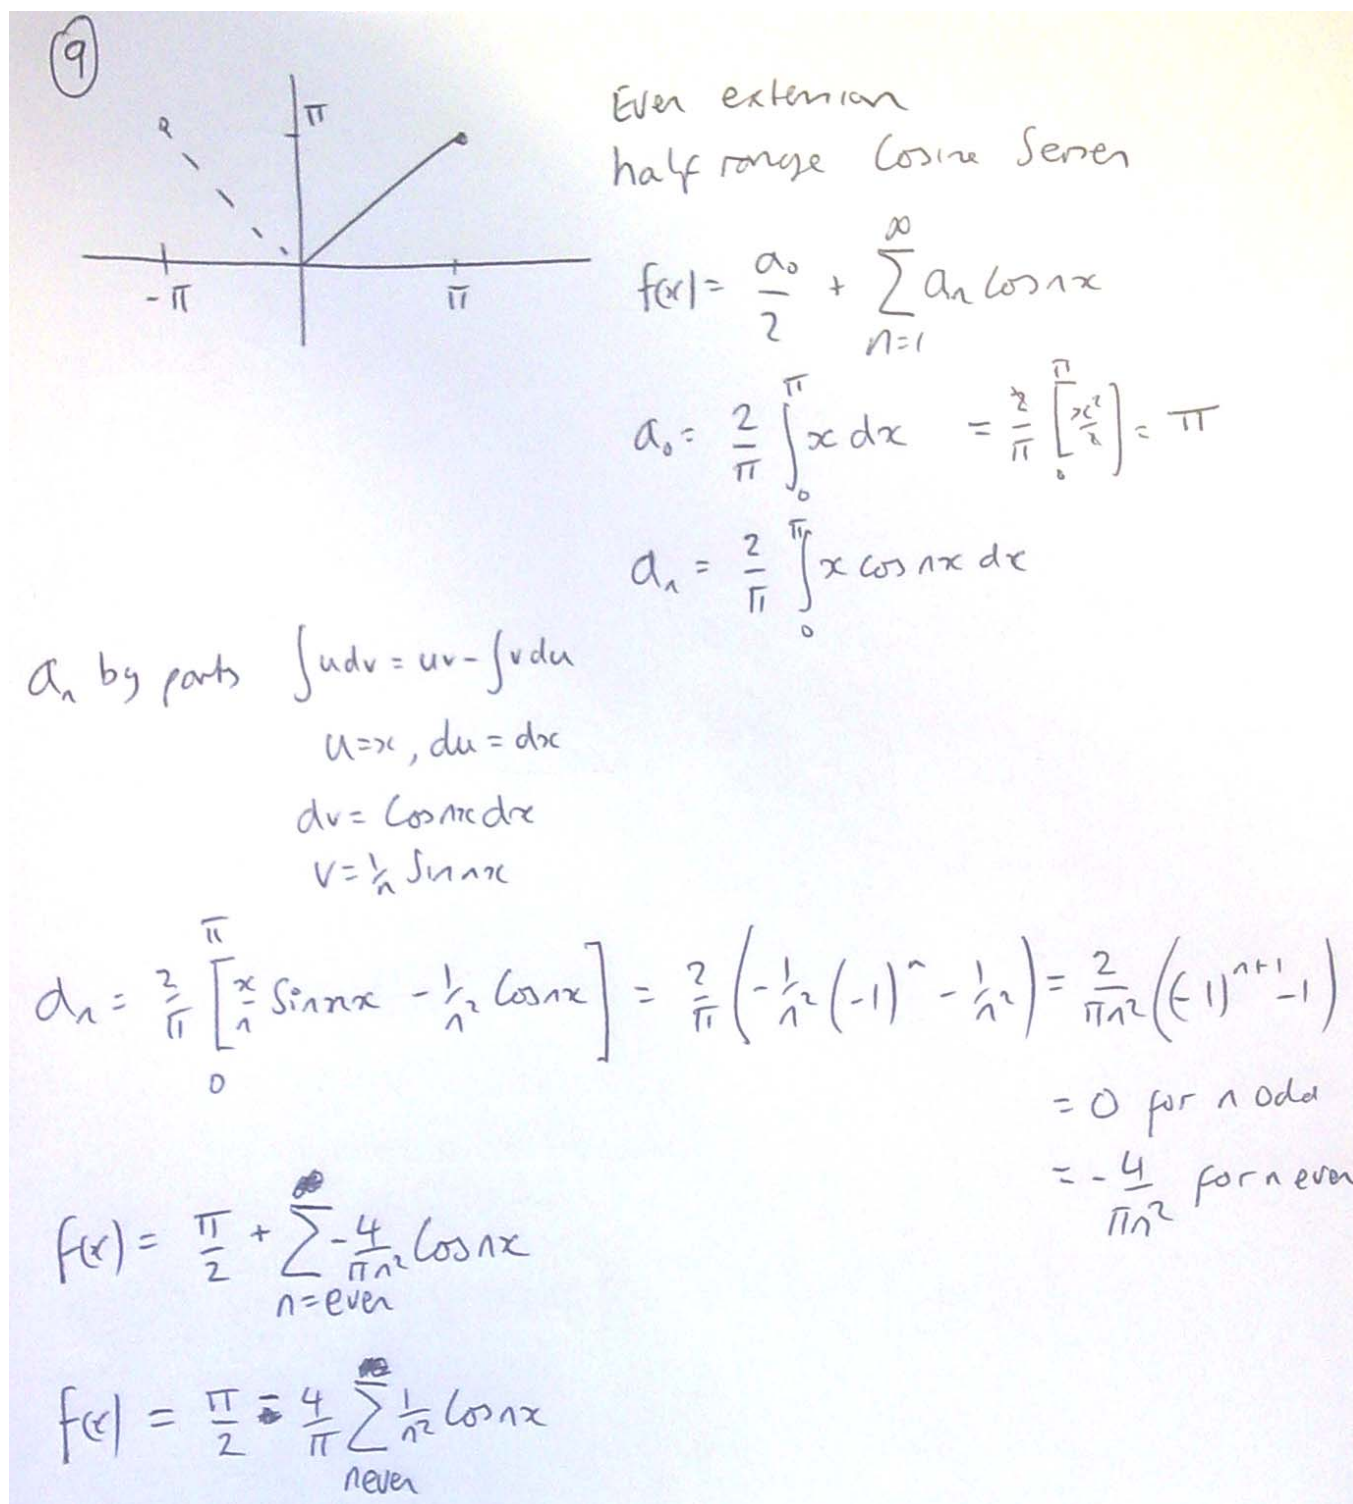 9
π
-π π
Even extension
half range Cosine Series
f(x) = a₀/2 + ∑_{n=1}^{∞} aₙ cosnx
a₀ = 2/π ∫₀^π x dx = 2/π [x²/2]₀^π = π
aₙ = 2/π ∫₀^π x cos nx dx
aₙ by parts ∫udv = uv - ∫vdu
u=x, du = dx
dv = Cosnx dx
v = 1/n Sinnx
aₙ = 2/π [x/n Sinnx - 1/n² Cosnx]₀^π = 2/π (-1/n² (-1)ⁿ - 1/n²) = 2/(πn²) ((-1)ⁿ⁺¹ - 1)
= 0 for n odd
= - 4/(πn²) for n even
f(x) = π/2 + ∑_{n=even} - 4/(πn²) Cosnx
f(x) = π/2 - 4/π ∑_{n even} 1/n² Cosnx